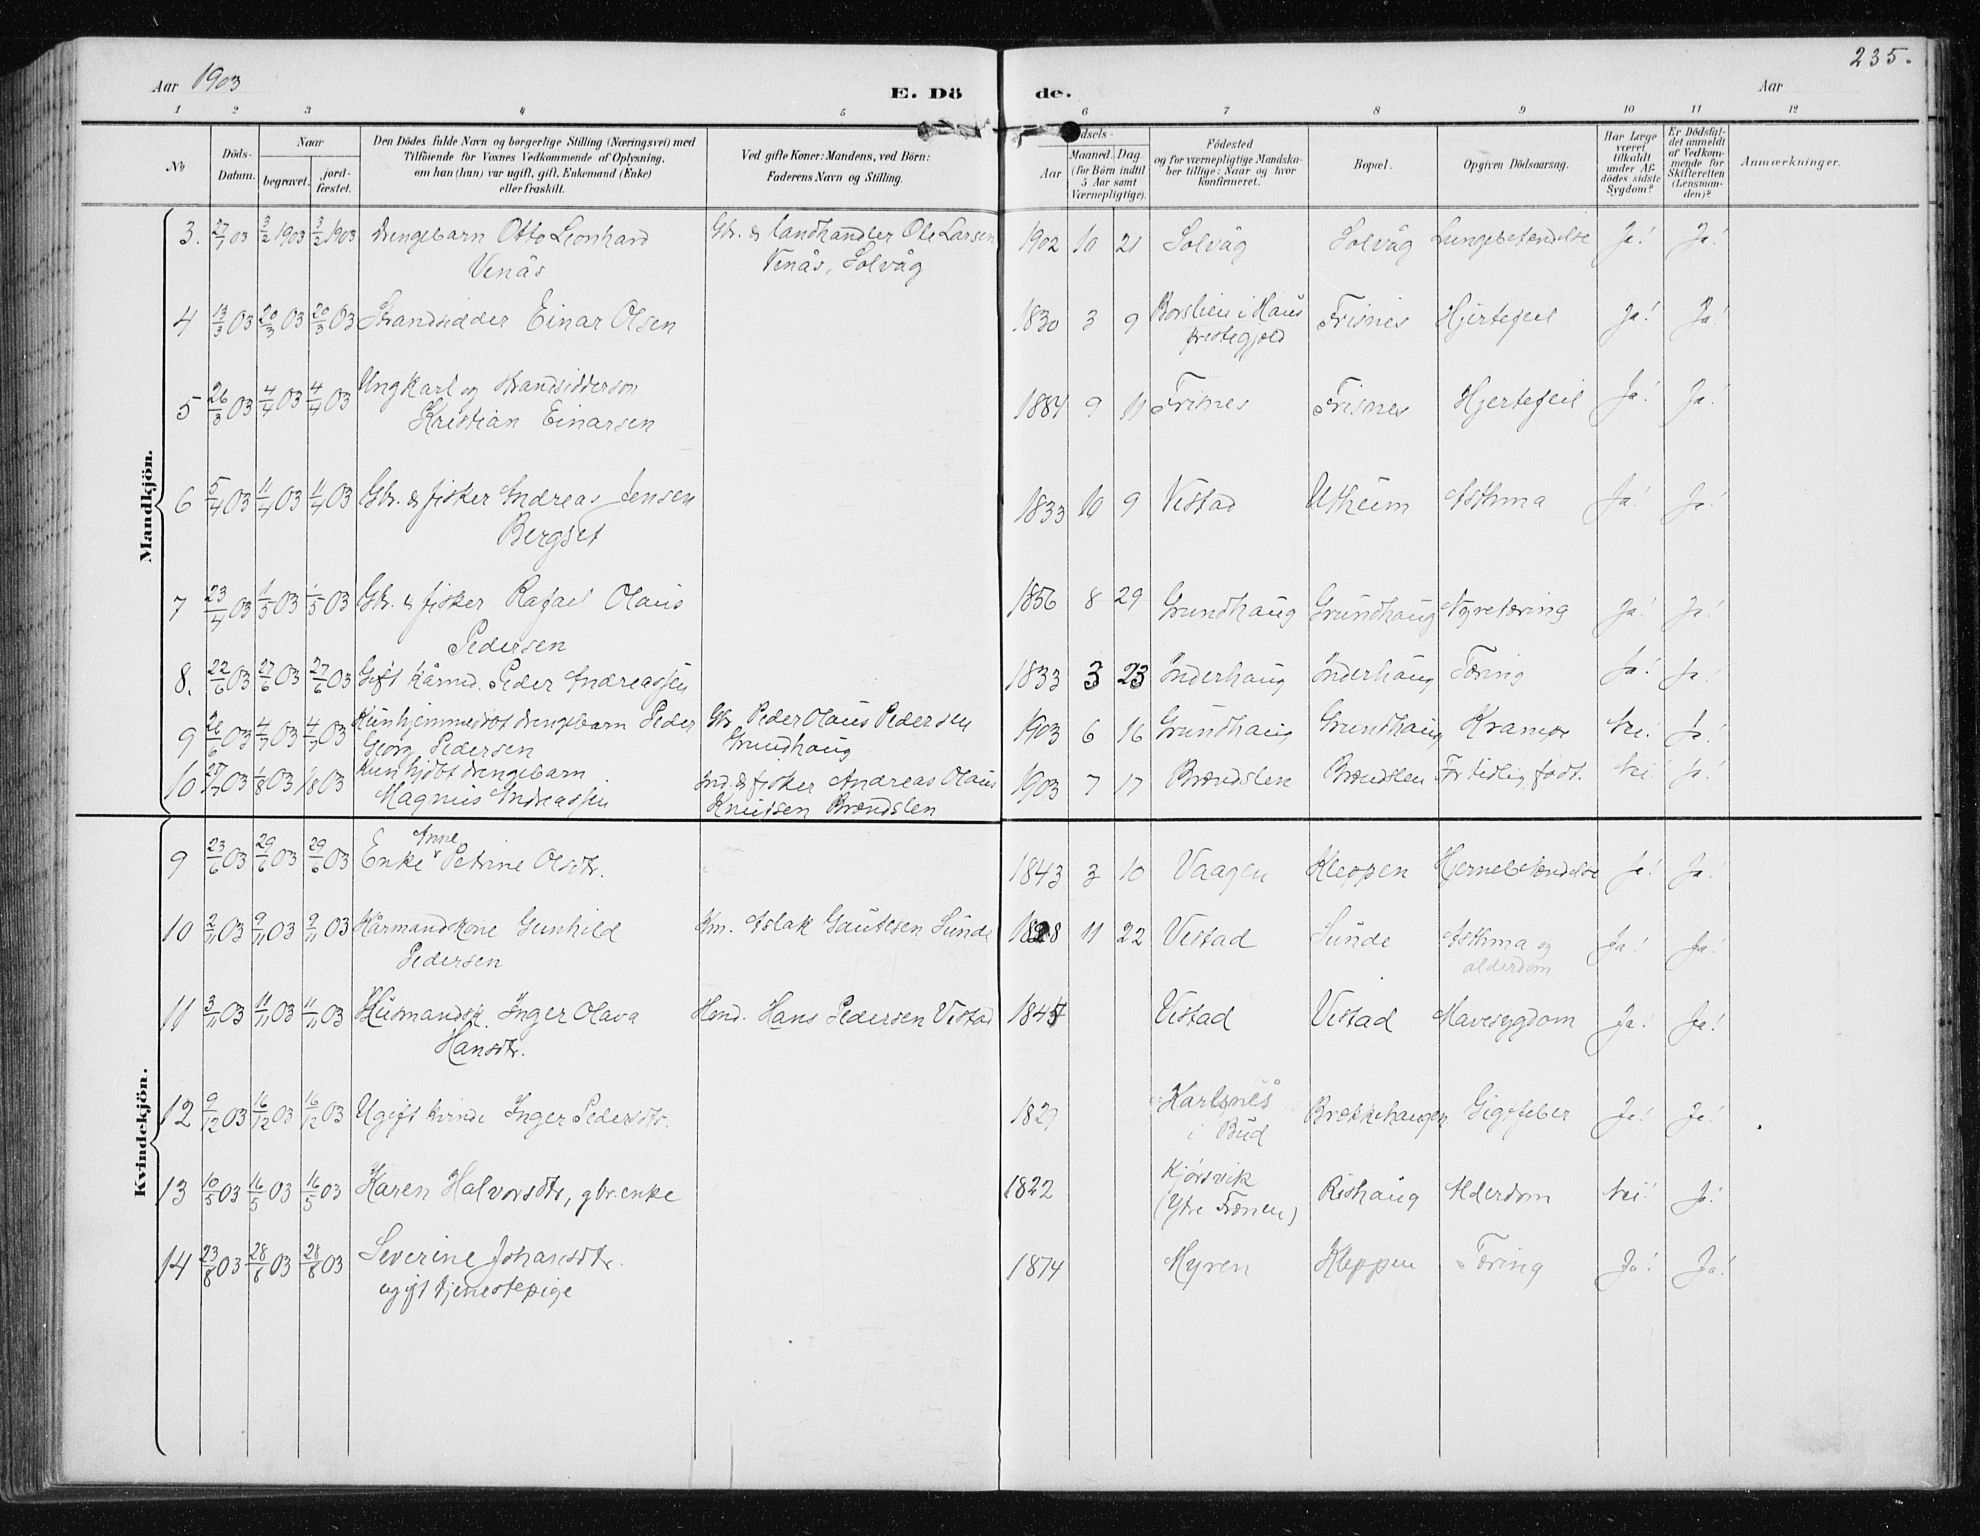 235.
Aar 1903
E. Dö de.
Aar
1 2 3 4 5 6 7 8 9 10 11 12
№
Döds-Datum.
Naar
begravet.
jord-fæstet.
Den Dödes fulde Navn og borgerlige Stilling (Næringsvei) med
Tilföiende for Voxnes Vedkommende af Oplysning,
om han (hun) var ugift, gift, Enkemand (Enke)
eller fraskilt.
Ved gifte Koner: Mandens, ved Börn:
Faderens Navn og Stilling.
dsels-
Aar
Maaned. Dag
(for Börn indtil
5 Aar samt
Værnepligtige).
Födested
og for værnepligtige Mandska-
ber tillige: Naar og hvor
konfirmeret.
Bopæl.
Opgiven Dödsaarsag.
Har Læge
været
tilkaldt
under Af-
dödes sidste
Sygdom?
Er Dödsfal-
det anmeldt
af Vedkom-
mende for
Skifteretten
(Lensman-
den)?
Anmærkninger.
Mandkjön.
3. 27/1 03 3/2 1903 3/2 1903 Drengebarn Otto Leonhard Gbr. & landhandler Ole Larsen 1902 10 21 Solvåg Solvåg Lungebetændelse Ja! Ja!
Venås Venås, Solvåg
4 13/3 03 20/3 03 20/3 03 Strandsidder Einar Olsen 1830 3 9 Borslien i Haus Frisnes Hjertefeil Ja! Ja!
prestegjeld
5 26/3 03 4/4 03 4/4 03 Ungkarl og strandsidderson 1884 9 11 Frisnes Frisnes Hjertefeil Ja! Ja!
Kristian Einarsen
6 5/4 03 11/4 03 11/4 03 Gbr. & fisker Andreas Jensen 1833 10 9 Vestad Utheim Asthma Ja! Ja!
Bergset
7 23/4 03 1/5 03 1/5 03 Gbr. & fisker Rafael Olaus 1856 8 29 Grundhaug Grundhaug Nyretæring Ja! Ja!
Pedersen
8. 22/6 03 27/6 03 27/6 03 Gift kårmd. Peder Andreassen 1833 3 23 Inderhaug Inderhaug Tæring Ja! Ja!
9 26/6 03 4/7 03 4/7 03 Kun hjemmedøbt drengebarn Peder Gbr Peder Olaus Pedersen 1903 6 16 Grundhaug Grundhaug Krampe Nei. Ja!
Georg Pedersen Grundhaug
10 27/7 03 1/8 03 1/8 03 Kun hjdøbt drengebarn Ind. & fisker Andreas Olaus 1903 7 17 Brændslen Brændslen For tidlig født. Nei Ja!
Magnus Andreassen Knutsen Brændslen
Kvindekjön.
9 23/6 03 29/6 03 29/6 03 Enke Anne Petrine Olsdtr. 1843 3 10 Vaagen Kleppen Hjernebetændelse Ja! Ja!
10 2/11 03 9/11 03 9/11 03 Kårmandkone Gunhild Km. Aslak Gautesen Sunde 1828 11 22 Vestad Sunde Asthma og Ja! Ja!
Pedersen alderdom
11 3/11 03 11/11 03 11/11 03 Husmandsk. Inger Olava Hmd. Hans Pedersen Vestad 1845 Vestad Vestad Mavesygdom Ja! Ja!
Hansdtr.
12 9/12 03 16/12 03 16/12 03 Ugift kvinde Inger Pedersdtr. 1829 Karlsnes Brækkehaugen Gigtfeber Ja! Ja!
i Bud
13 10/5 03 16/5 03 16/5 03 Karen Halvorsdtr, gbr.enke 1822 Kjørsvik Rishaug Alderdom Nei! Ja!
(Ytre Frænen)
14 23/8 03 28/8 03 28/8 03 Severine Johansdtr. 1874 Myren Kleppen Tæring Ja! Ja!
ugift tjenestepige